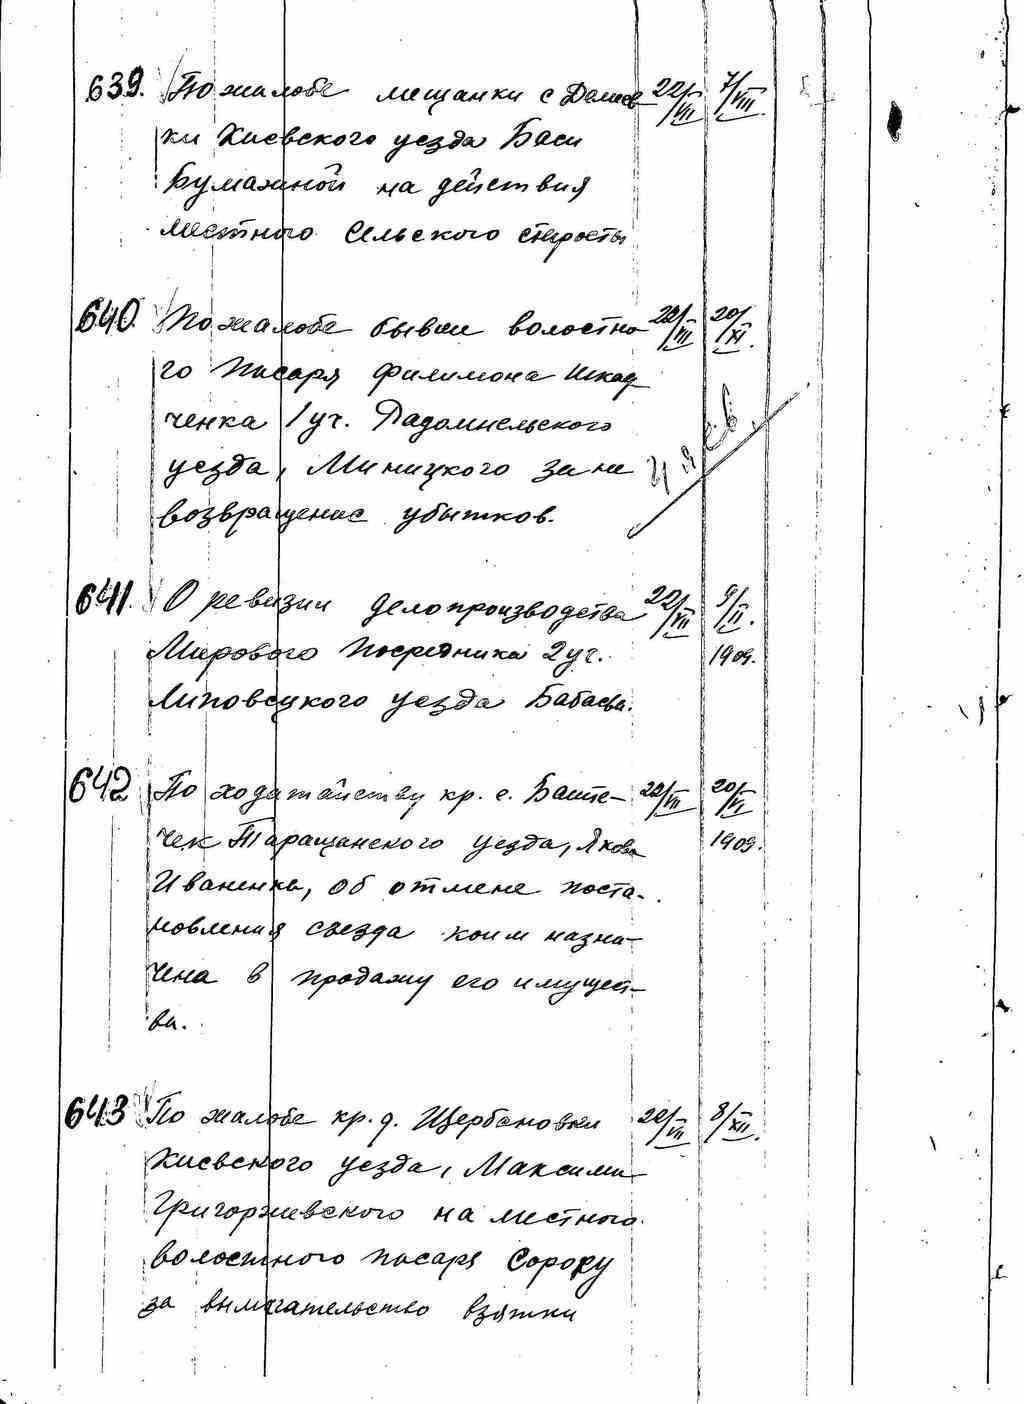 639. По жалобе мещанки с Демиев- 22/VII 7/VIII.
ки Киевского уезда Баси
Бумажной на действия
местного Сельского старосты
640. По жалобе бывш волостно 22/VII 20/XI.
го писаря Филимона Шкад
ченка 1 уч. Радомысльского
уезда, Миницкого за не
возвращение убытков.
641. О ревизии делопроизводства 22/VII 9/II.
Мирового Посредника 2 уч. 1909.
Липовецкого уезда Бабаева.
642 По ходатайству кр. с. Баште- 22/VII 20/VI
чек Таращанского уезда, Якова 1909.
Иваненка, об отмене поста-
новления съезда коим назна-
чена в продажу его имущест-
ва.
643 По жалобе кр. д. Щербановки 22/VII 8/XII.
Киевского уезда, Максима
Григоржевского на местного
волостного писаря Сороку
за вымогательство взятки